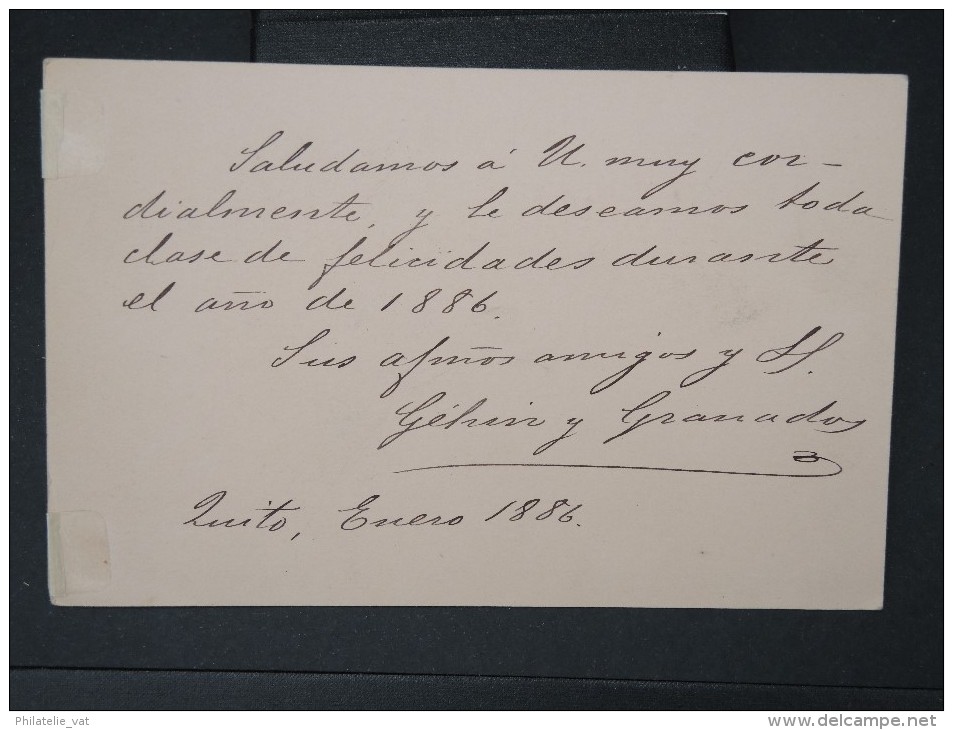 Saludamos á U. muy cor-
dialmente, y le deseamos toda
clase de felicidades durante
el año de 1886.
Sus afmos amigos y SS.
Géhin y Granados
Quito, Enero 1886.
Philatelie_vat
www.delcampe.net